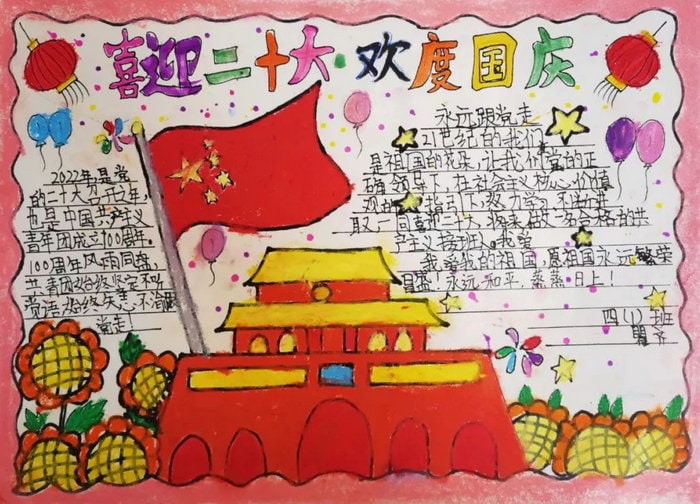 喜迎二十大·欢度国庆
2022年是党
的二十大召开之年,
也是中国共产主义
青年团成立100周年。
100周年风雨同
共青团始终坚定
党话,始终矢志不渝跟
党走!
永远跟党走
21世纪的我们
是祖国的花朵,让我们党的正
确领导下,在社会主义核心价值
观的指引下,努力学习,不断进
取,一同喜迎二十大,将来做一名合格的共
产主义接班人。我爱
我爱我的祖国,愿祖国永远繁荣
昌盛!永远和平,蒸蒸日上!
四(1)班